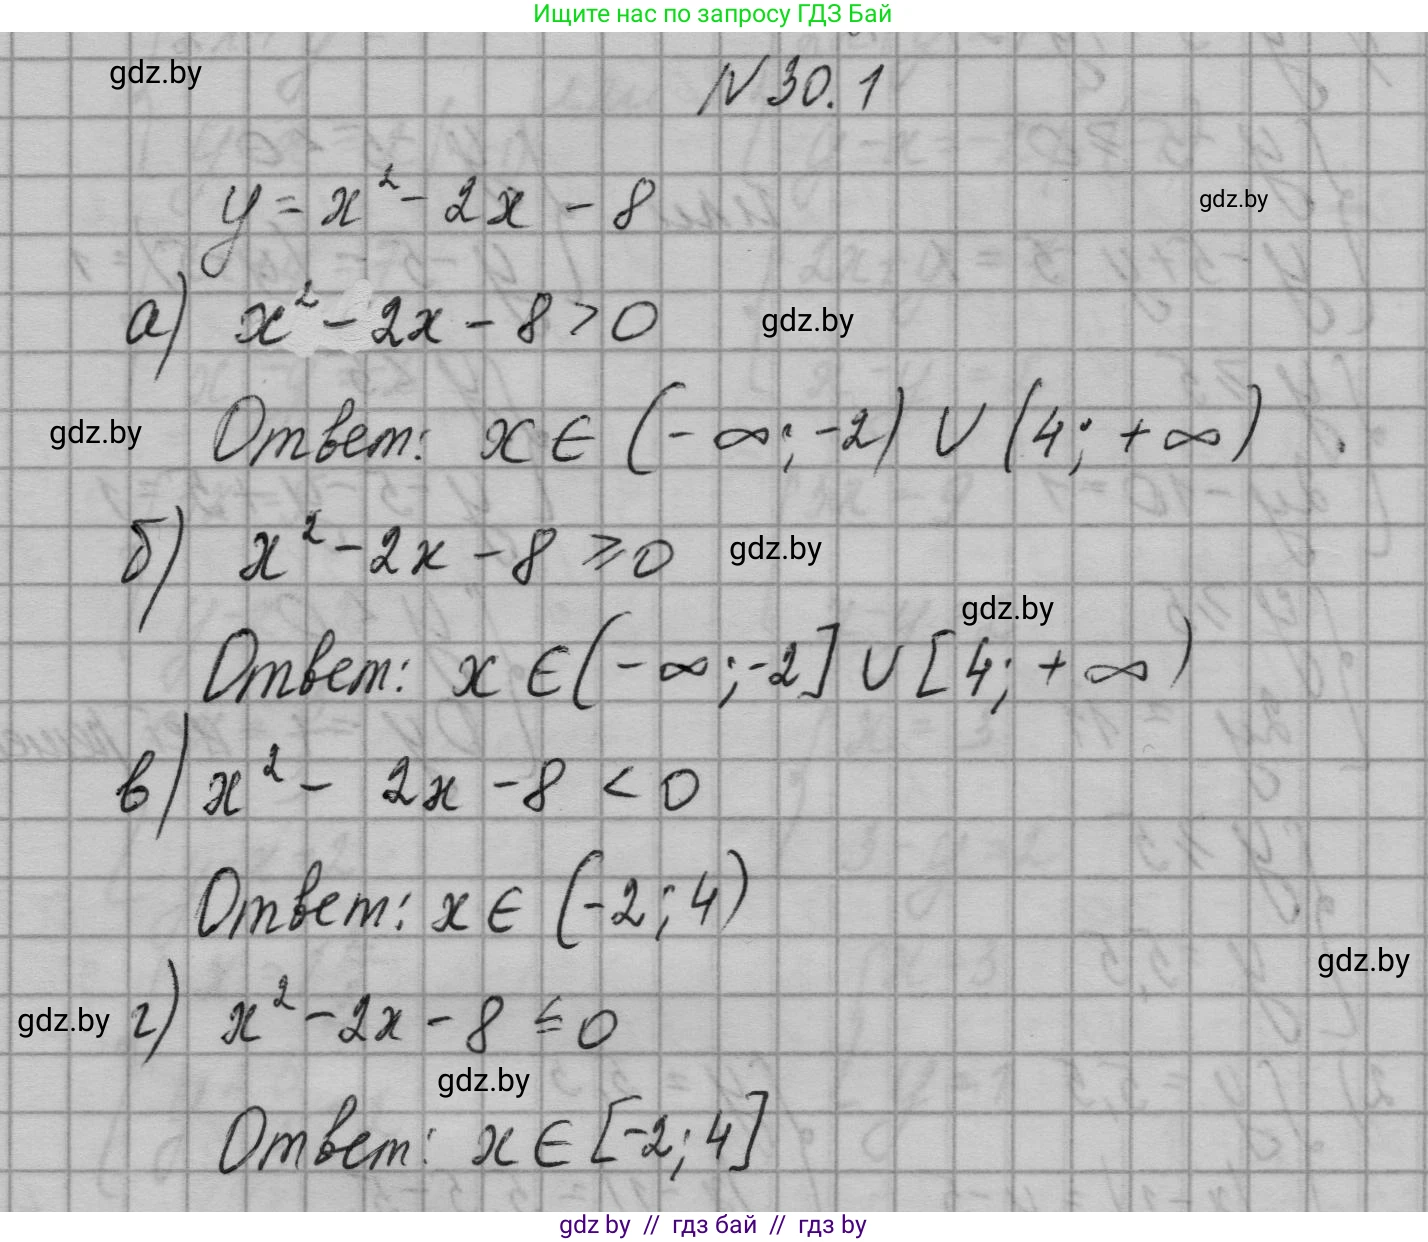 Ищите нас по запросу ГДЗ Бай
gdz.by
N 30.1
y = x² - 2x - 8
gdz.by
а) x² - 2x - 8 > 0
gdz.by
gdz.by
Ответ: x ∈ (- ∞; -2) ∪ (4; + ∞).
б) x² - 2x - 8 ⩾ 0
gdz.by
gdz.by
Ответ: x ∈ (- ∞; -2] ∪ [4; + ∞)
в) x² - 2x - 8 < 0
Ответ: x ∈ (-2; 4)
gdz.by
gdz.by
г) x² - 2x - 8 ≤ 0
gdz.by
Ответ: x ∈ [-2; 4]
gdz by // гдз бай // гдз by